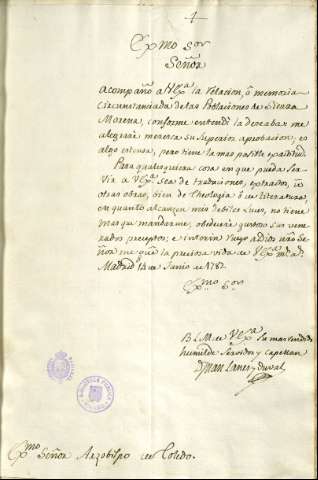 4
Exmo Sor
Señor
Acompaño a VExa la Relacion, ò memoria
Circunstanciada de las Poblaciones de Sierra
Morena, conforme entendi la deseaba: me
alegrarè merezca su Superior aprobacion; es
algo extensa, pero tiene la mas posible exactitud.
Para qualesquiera cosa en que pueda ser-
vir a VExa sea de traduciones, extractos, ù
otras obras, bien de Theologia ò de literatura,
en quanto alcanzen mis debiles luces, no tiene
mas que mandarme, obedecerè gustoso sus vene-
rados preceptos; e interin ruego a Dios nro Se-
ñor me gue la preciosa vida de VExa ms as
Madrid 14 de Junio de 1787.
Exmo Sor
B L M de VExa su mas rendido
humilde Servidor y Capellan
Juan Lanes y Duval
Exmo Señor Arzobispo de Toledo.